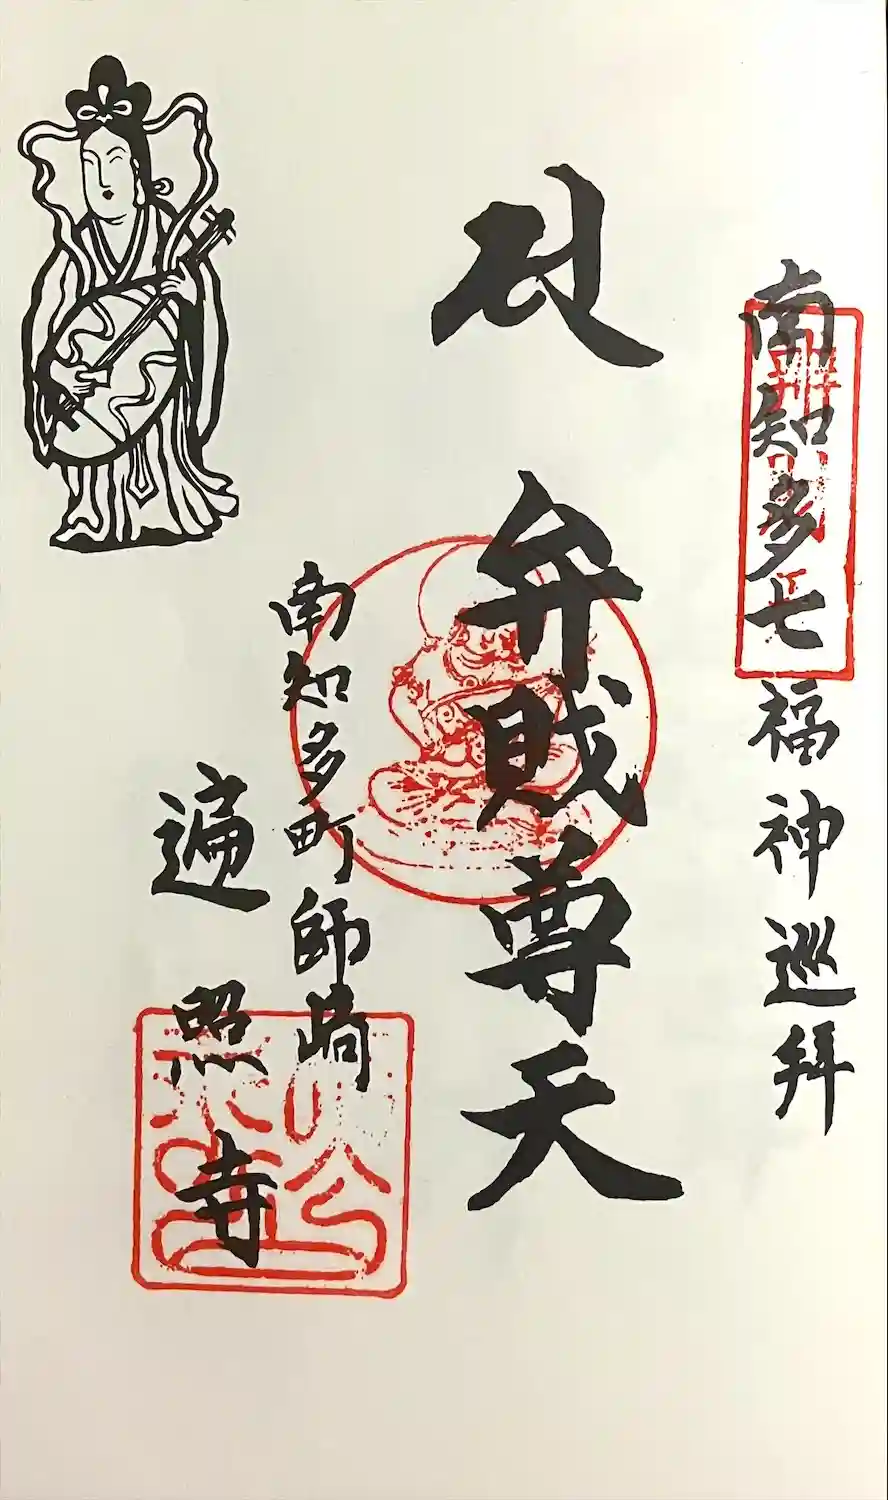 南知多七福神巡拝
弁賎尊天
南知多町師崎
遍照寺